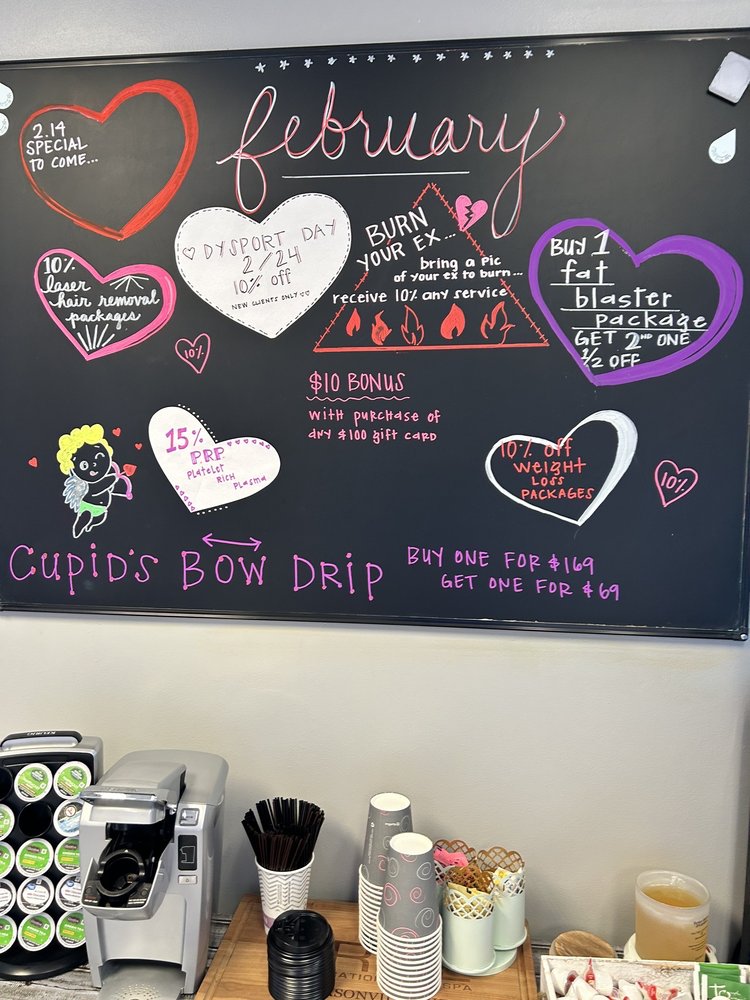 february
2.14
SPECIAL
TO COME...
DYSPORT DAY
2/24
10% off
NEW CLIENTS ONLY
BURN
YOUR EX...
bring a pic
of your ex to burn...
receive 10% any service
BUY 1
fat
blaster
package
GET 2ND ONE
1/2 OFF
10%
laser
hair removal
packages
10%
$10 BONUS
with purchase of
any $100 gift card
15%
PRP
Platelet
RICH
Plasma
10% off
Weight
LOSS
PACKAGES
10%
CUPID'S BOW DRIP
BUY ONE FOR $169
GET ONE FOR $69
KEURIG